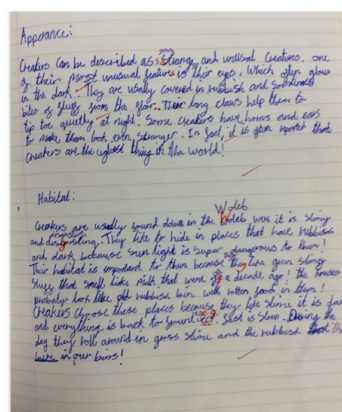 Apperance:
Creakers can be described as strange and unusal creatures. one
of their most unusual features is their eyes, Which often glow
in the dark. They are usally covered in rubbish and sometimes
bites of fluff from the floor. Their long claws help them to
tip toe quietly at night. Some creakers have horns and ears
to make them look even stranger. In fact, it is often reported that
creakers are the ugliest thing in the world!
Habitat:
Woleb
Creakers are usually found down in the Woleb were it is slimy
and disgusting. They like to hide in places that have rubbish
and dark because sun light is super dangerous to them!
Their habitat is important to them because they like green slimey
that smell like milk that went off a decade ago! the houses
probaly look like old rubbish bein with rotten food in them!
Creakers choose these places because they like slime it is dark
and everything is back to fast is slow. During the
day they roll around in gross slime and the rubbish
in our bins!